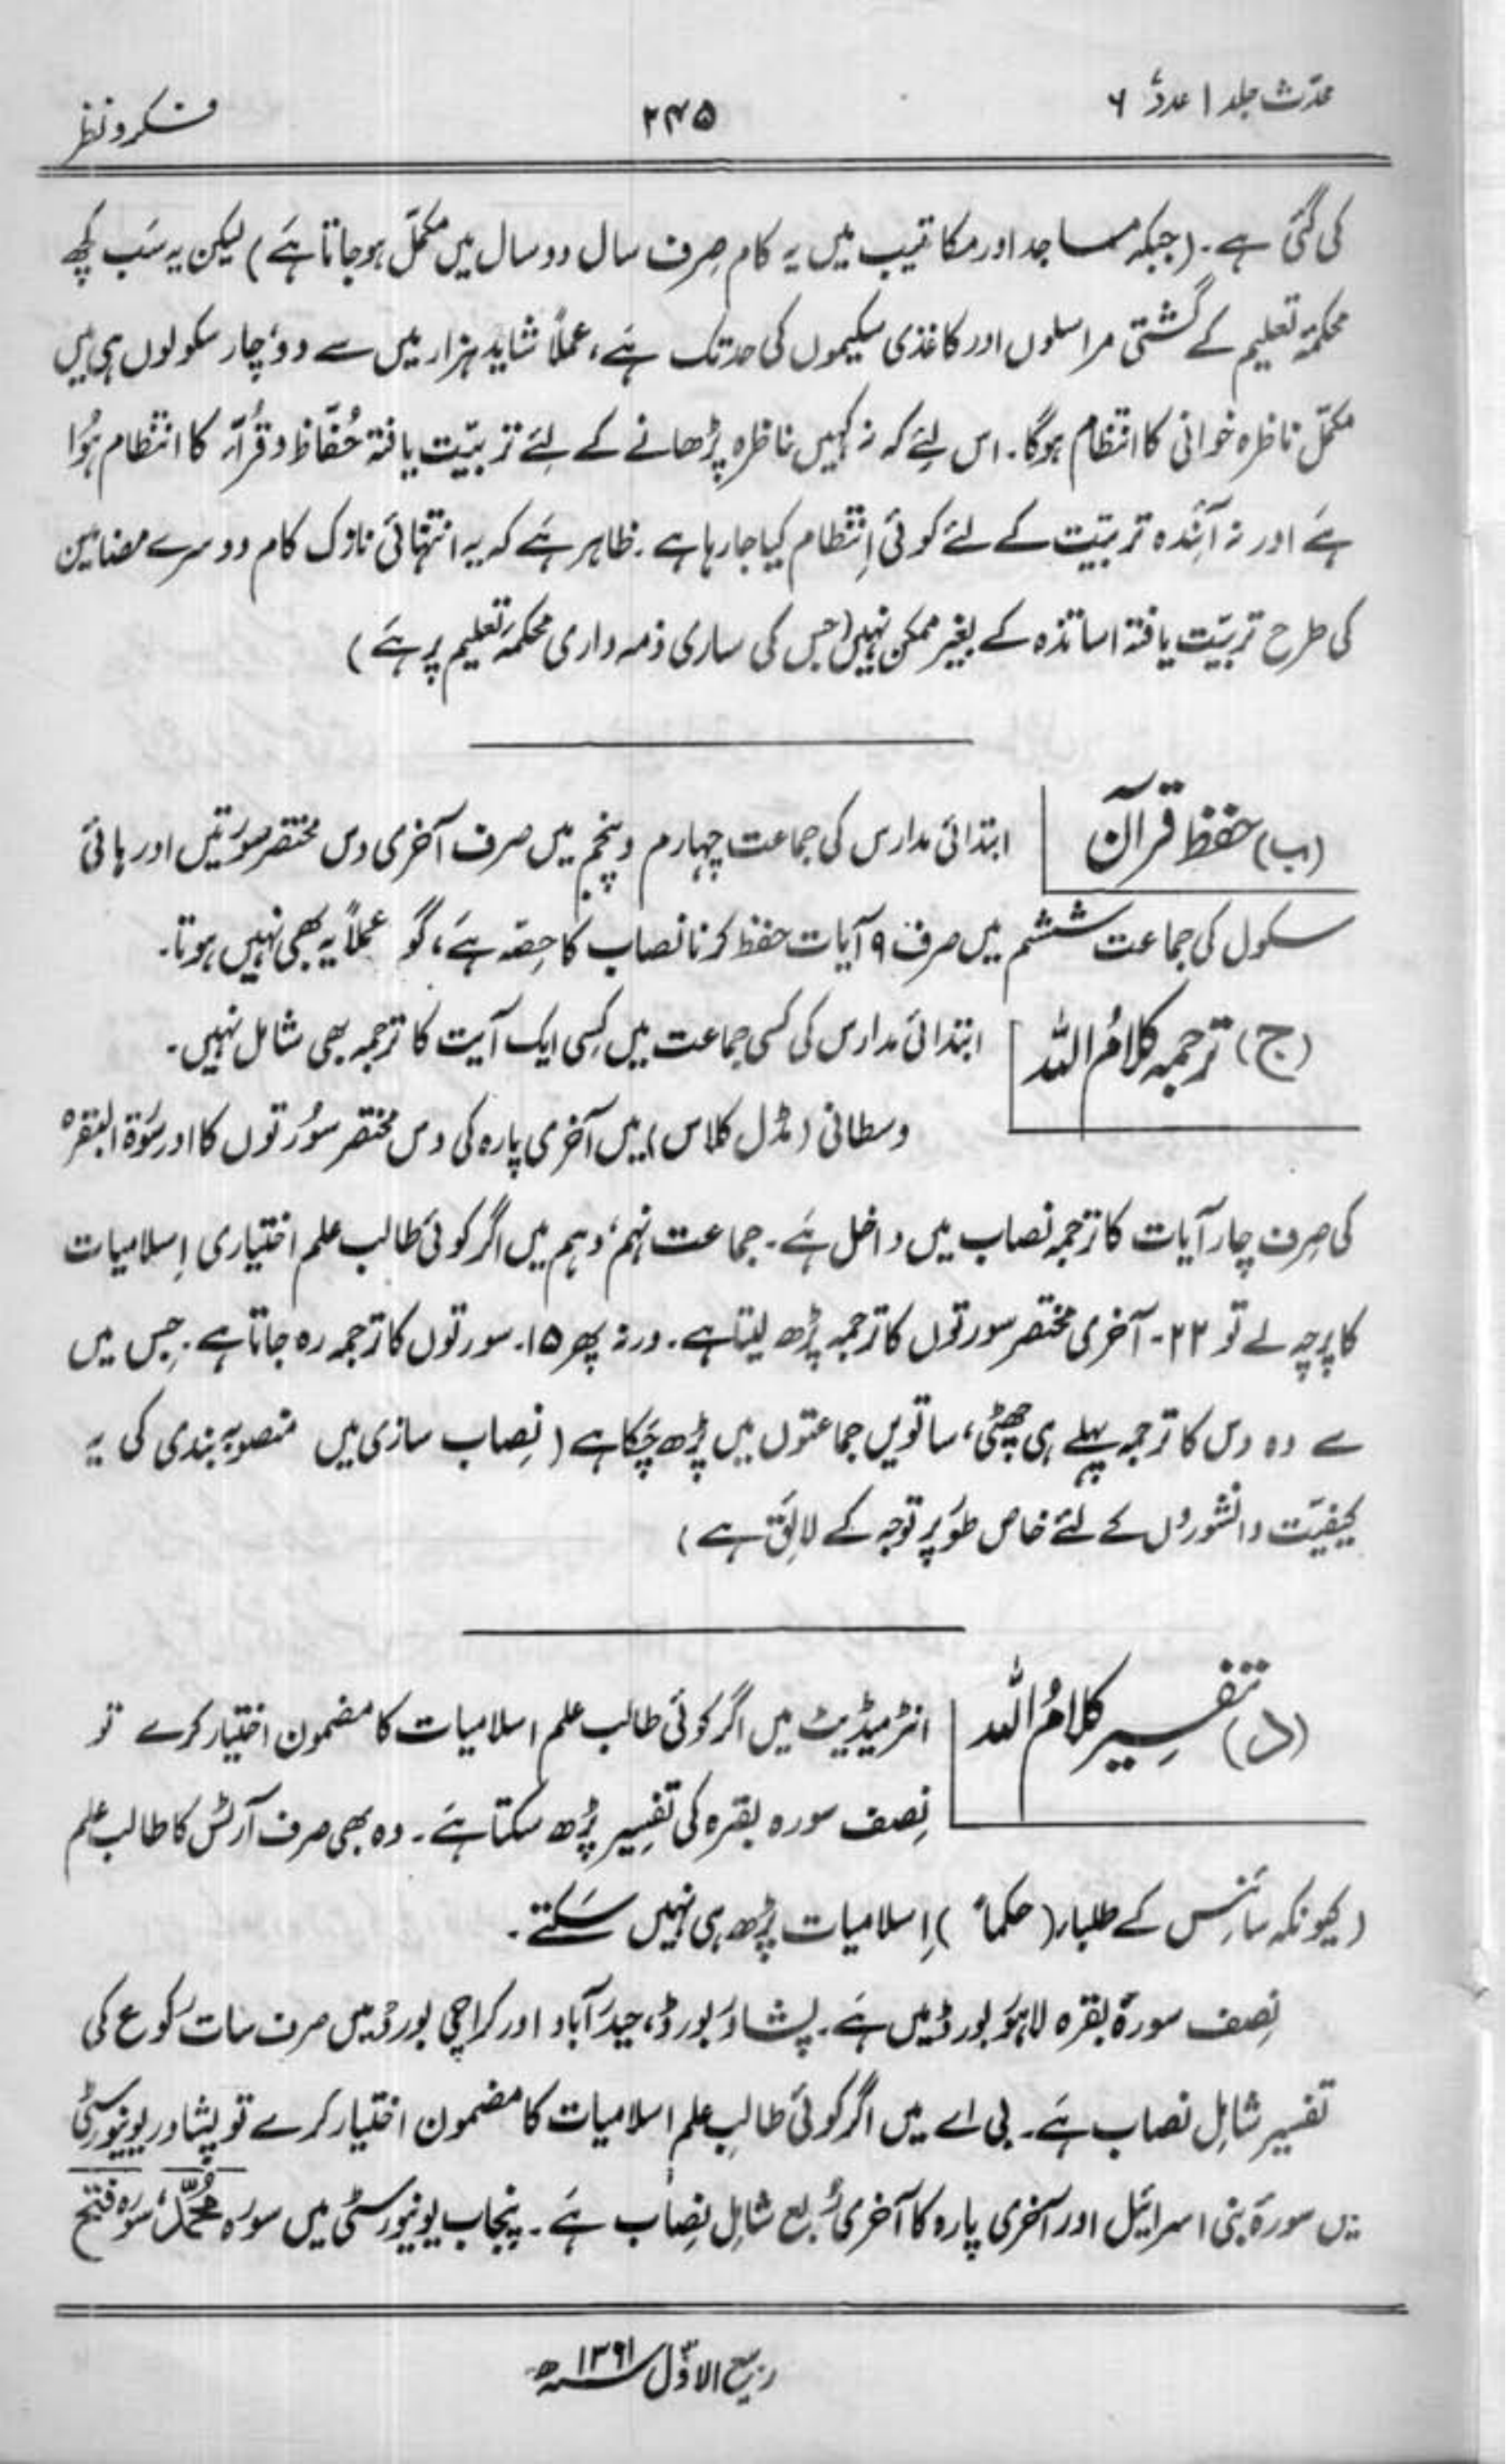 محدّث جلد ۱ عدد ۶
۲۴۵
فکر و نظر
کی گئی ہے۔ (جبکہ مساجد اور مکاتیب میں یہ کام صِرف سال دو سال میں مکمّل ہو جاتا ہَے) لیکن یہ سَب کچھ
محکمۂ تعلیم کے گشتی مراسلوں اور کاغذی سکیموں کی حد تک ہَے، عملاً شاید ہزار میں سے دو، چار سکولوں ہی میں
مکمّل ناظرہ خوانی کا انتظام ہوگا۔ اس لئے کہ نہ کہیں ناظرہ پڑھانے کے لئے تربیّت یافتہ حُفّاظ و قُرّاء کا انتظام ہُوا
ہَے اور نہ آئندہ تربیّت کے لئے کوئی اِنتظام کیا جا رہا ہے۔ ظاہر ہَے کہ یہ انتہائی نازک کام دوسرے مضامین
کی طرح تربیّت یافتہ اساتذہ کے بغیر ممکن نہیں (جس کی ساری ذمہ داری محکمۂ تعلیم پر ہَے)
(ب) حفظ قرآن
ابتدائی مدارس کی جماعت چہارم و پنجم میں صرف آخری دس مختصر سورتیں اور ہائی
سکول کی جماعت ششم میں صرف ۹ آیات حفظ کرنا نصاب کا حِصّہ ہَے، گو عملاً یہ بھی نہیں ہوتا۔
(ج) ترجمہ کلامُ اللہ
ابتدائی مدارس کی کسی جماعت میں کِسی ایک آیت کا ترجمہ بھی شامل نہیں۔
وسطانی (مڈل کلاس) میں آخری پارہ کی دس مختصر سُورتوں کا اور سُورۃ البقرہ
کی صِرف چار آیات کا ترجمہ نصاب میں داخل ہَے۔ جماعت نہم، دہم میں اگر کوئی طالب علم اختیاری اِسلامیات
کا پرچہ لے تو ۲۲۔ آخری مختصر سورتوں کا ترجمہ پڑھ لیتا ہے۔ ورنہ پھر ۱۵۔ سورتوں کا ترجمہ رہ جاتا ہے۔ جِس میں
سے وہ دس کا ترجمہ پہلے ہی چھٹی، ساتویں جماعتوں میں پڑھ چُکا ہے (نِصاب سازی میں منصوبہ بندی کی یہ
کیفیّت دانشوروں کے لئے خاص طور پر توجہ کے لائق ہے)
(د) تفسیر کلامُ اللہ
انٹرمیڈیٹ میں اگر کوئی طالب علم اسلامیات کا مضمون اختیار کرے تو
نِصف سورہ بقرہ کی تفسِیر پڑھ سکتا ہَے۔ وہ بھی صرف آرٹس کا طالب علم
(کیونکہ سائنس کے طلباء (حکماً) اِسلامیات پڑھ ہی نہیں سَکتے۔
نِصف سورۂ بقرہ لاہور بورڈ میں ہَے۔ پشاور بورڈ، حیدرآباد اور کراچی بورڈ میں صرف سات رکوع کی
تفسیر شامِل نصاب ہَے۔ بی اے میں اگر کوئی طالبِ علم اسلامیات کا مضمون اختیار کرے تو پشاور یونیورسٹی
میں سورۂ بنی اسرائیل اور آخری پارہ کا آخری رُبع شامِل نِصاب ہَے۔ پنجاب یونیورسٹی میں سورہ مُحمّدؐ، سُورہ فتح
ربیع الاوّل ۱۳۹۱ھ